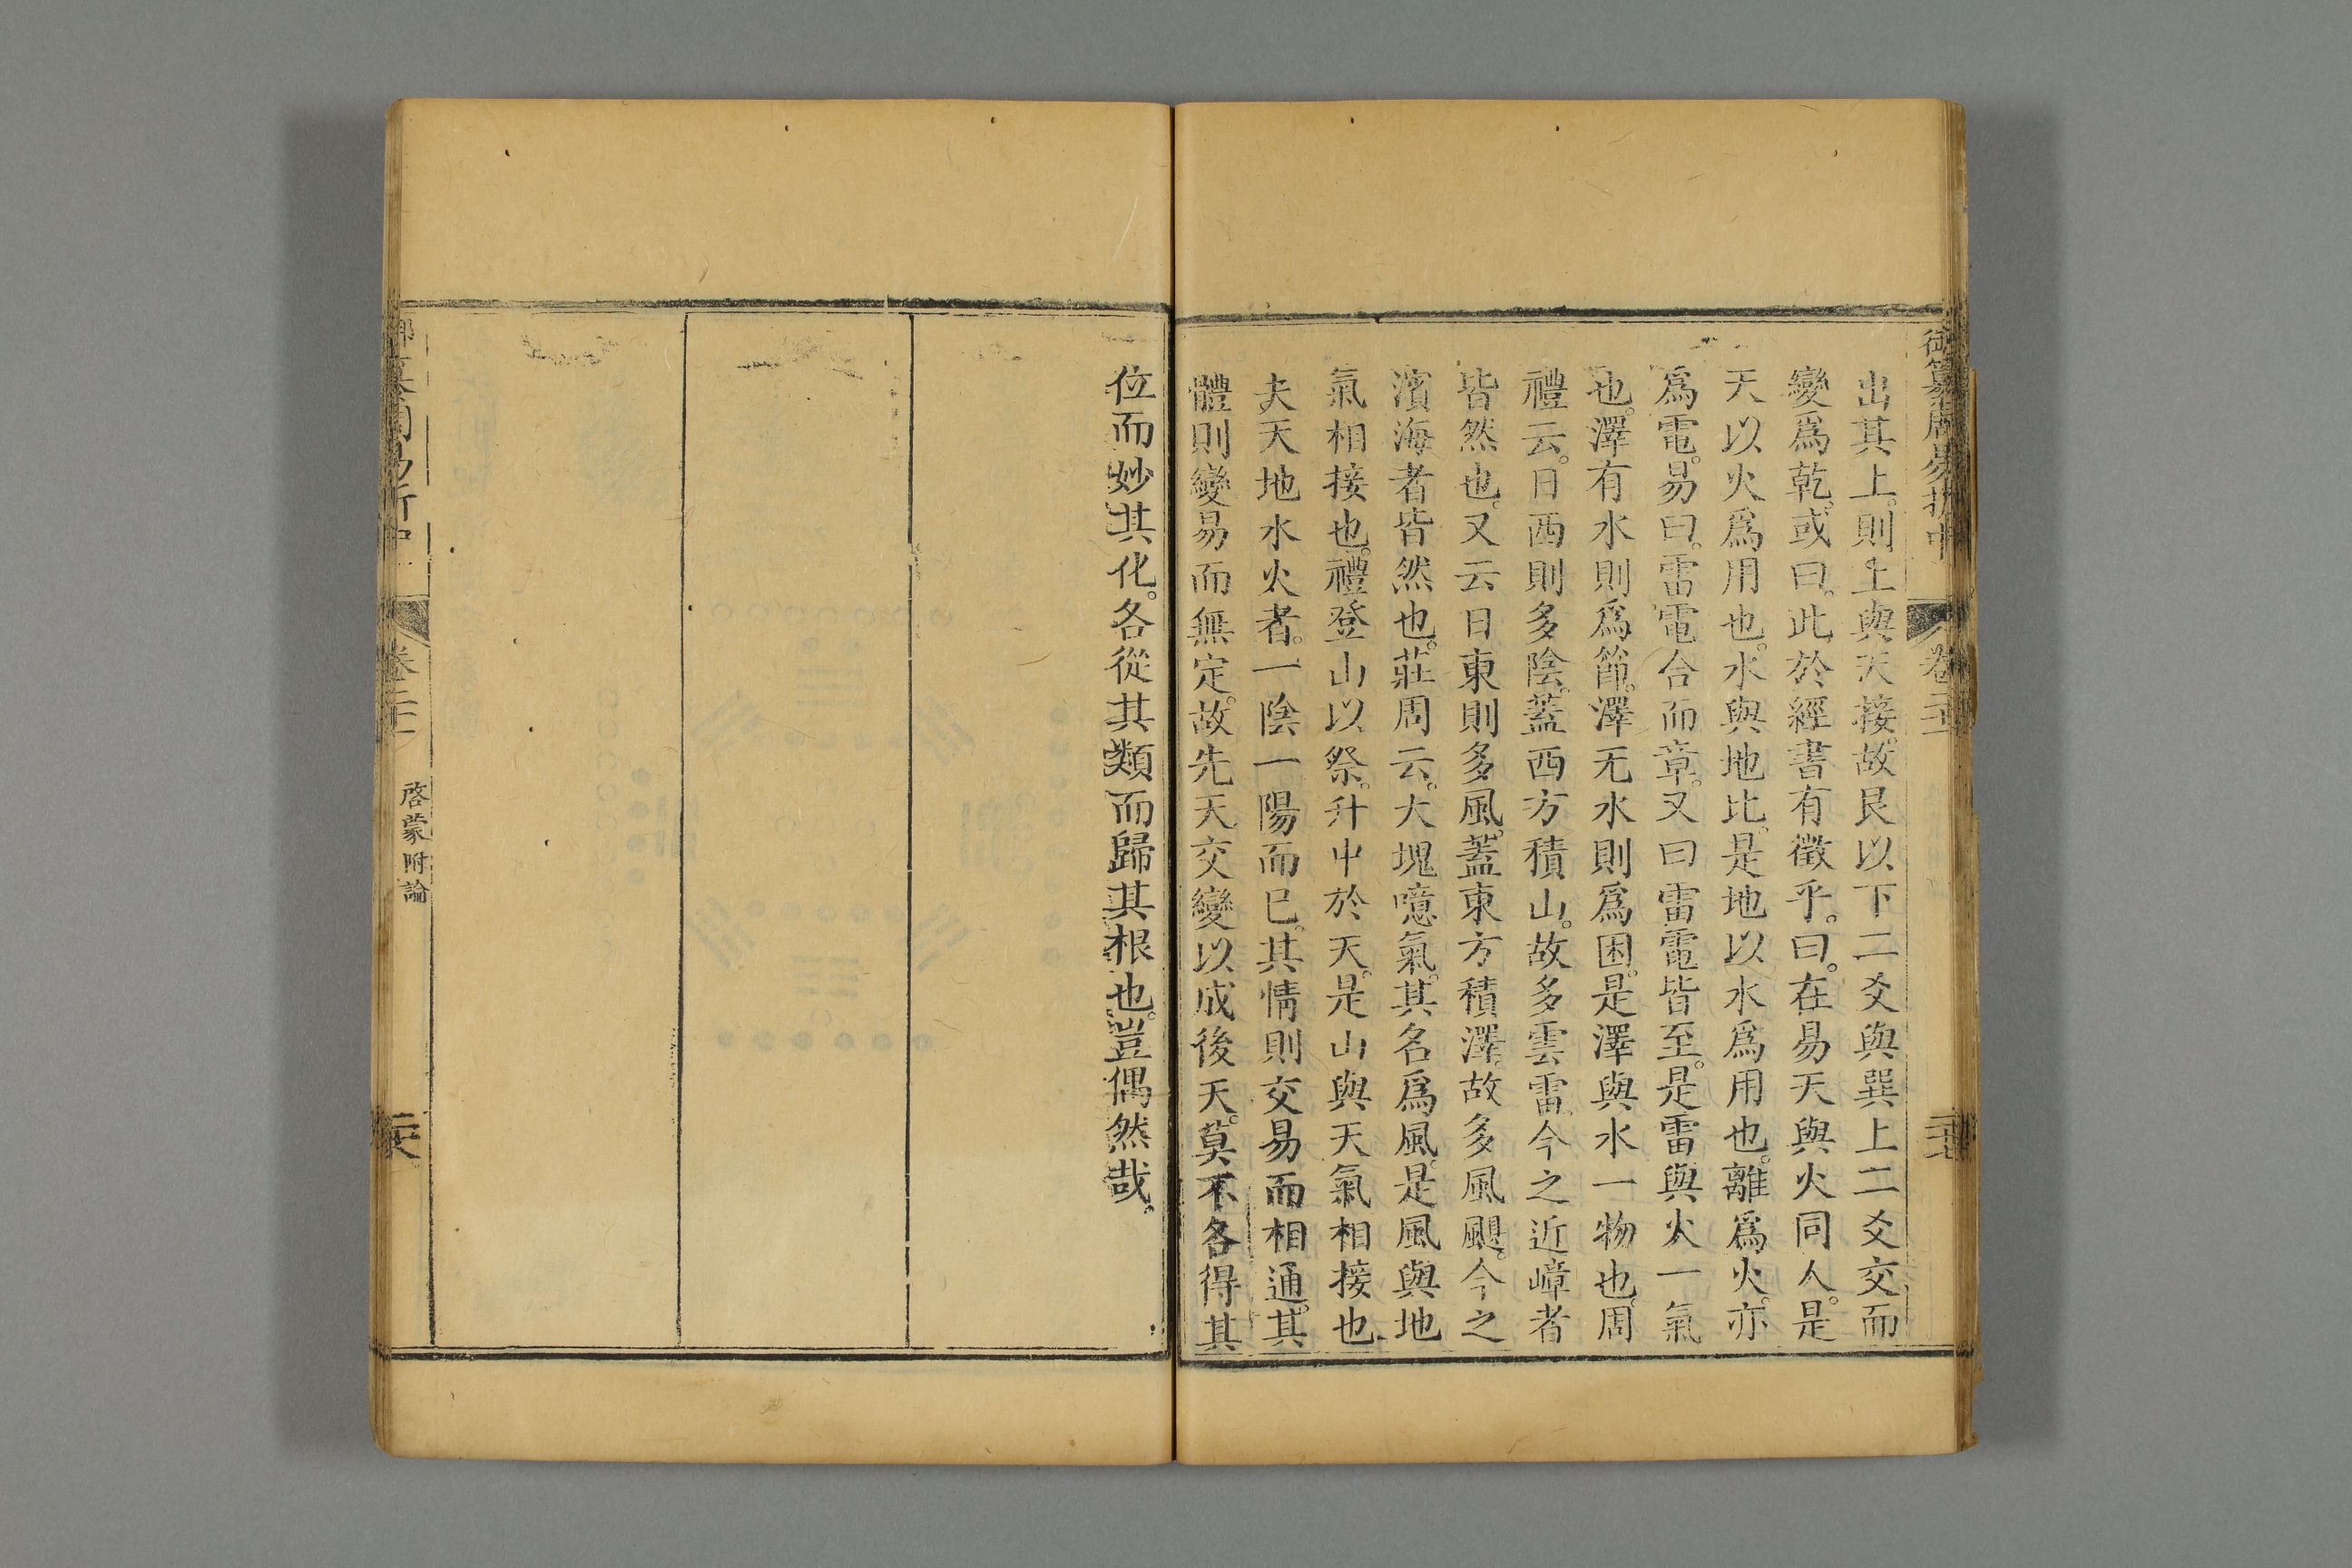 御纂周易折中
卷二十一
二十七
出其上。則上與天接。故艮以下二爻與巽上二爻交而
變爲乾。或曰。此於經書有徵乎。曰。在易天與火同人。是
天以火爲用也。水與地比。是地以水爲用也。離爲火。亦
爲電。易曰。雷電合而章。又曰雷電皆至。是雷與火一氣
也。澤有水則爲節。澤无水則爲困。是澤與水一物也。周
禮云。日西則多陰。蓋西方積山。故多雲雷。今之近嶂者
皆然也。又云日東則多風。蓋東方積澤。故多風颶。今之
濱海者皆然也。莊周云。大塊噫氣。其名爲風。是風與地
氣相接也。禮登山以祭。升中於天。是山與天氣相接也
夫天地水火者。一陰一陽而已。其情則交易而相通。其
體則變易而無定。故先天交變以成後天。莫不各得其
位而妙其化。各從其類而歸其根也。豈偶然哉。
啓蒙附論